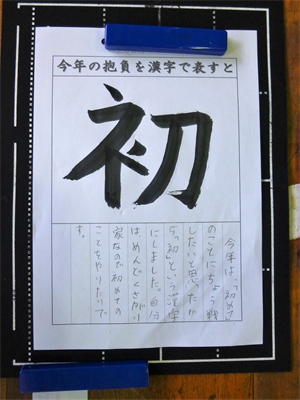 今年の抱負を漢字で表すと
初
今年は、「初めて」
のことにちょう戦
したいと思ったか
ら「初」という漢字
にしました。自分
は、めんどくさがり
家なので初めての
ことをやりたいで
す。